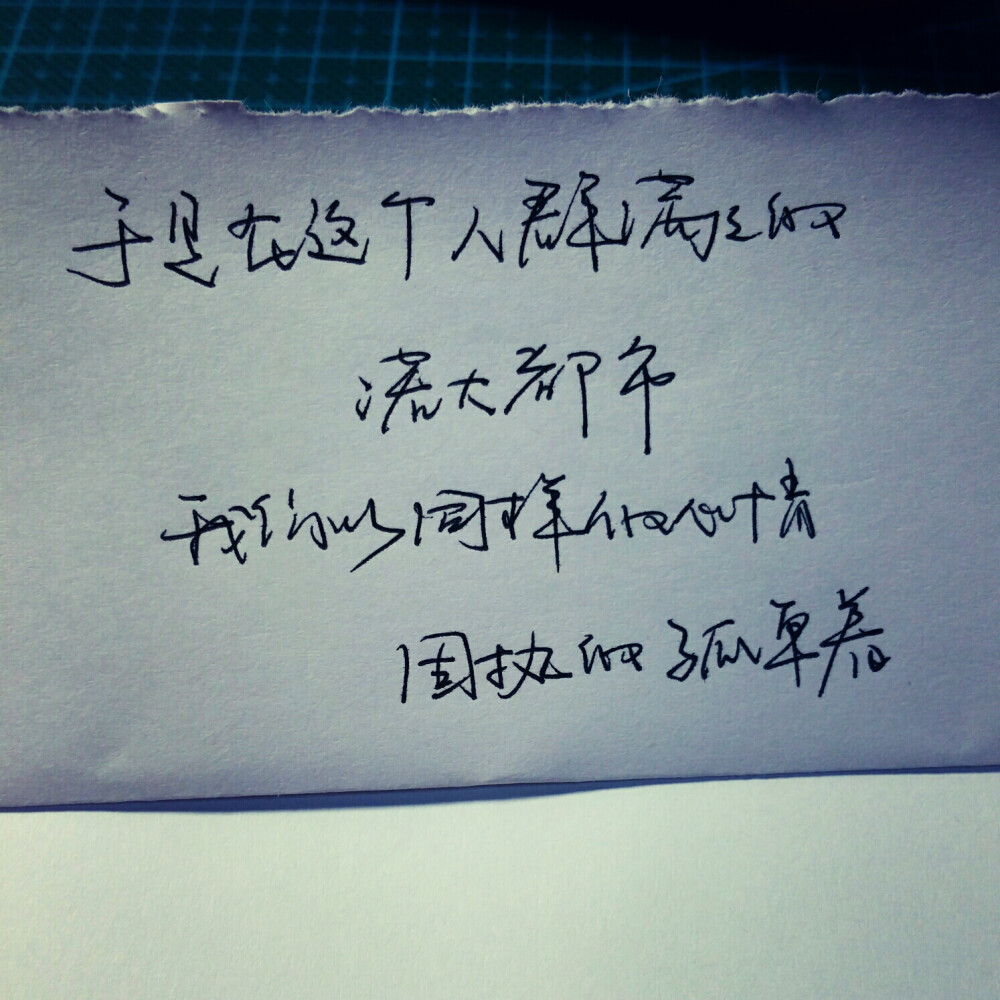 于是在这个人群满足的
诺大都市
我们以同样的心情
固执的孤单着